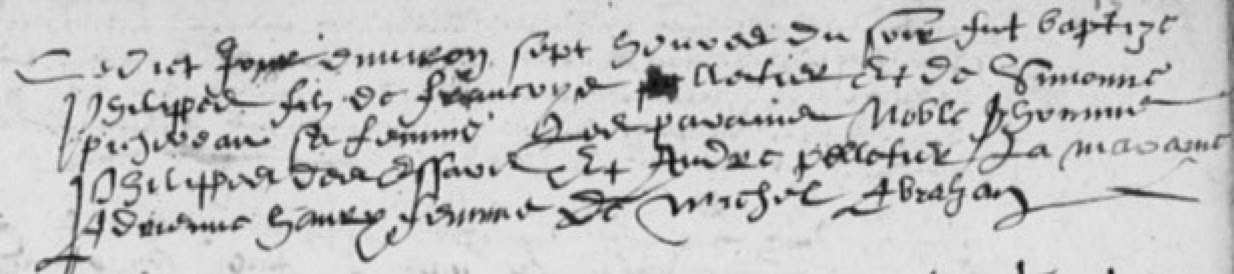 Ledict Jour environ sept heures du soir fut baptize
Philippes filz de Francoys pelletier Et de Simonne
pineau sa femme Les parains Noble homme
Philippes des Essars Et Andre pelletier La maraine
Adrienne haury femme de Michel Abrahan